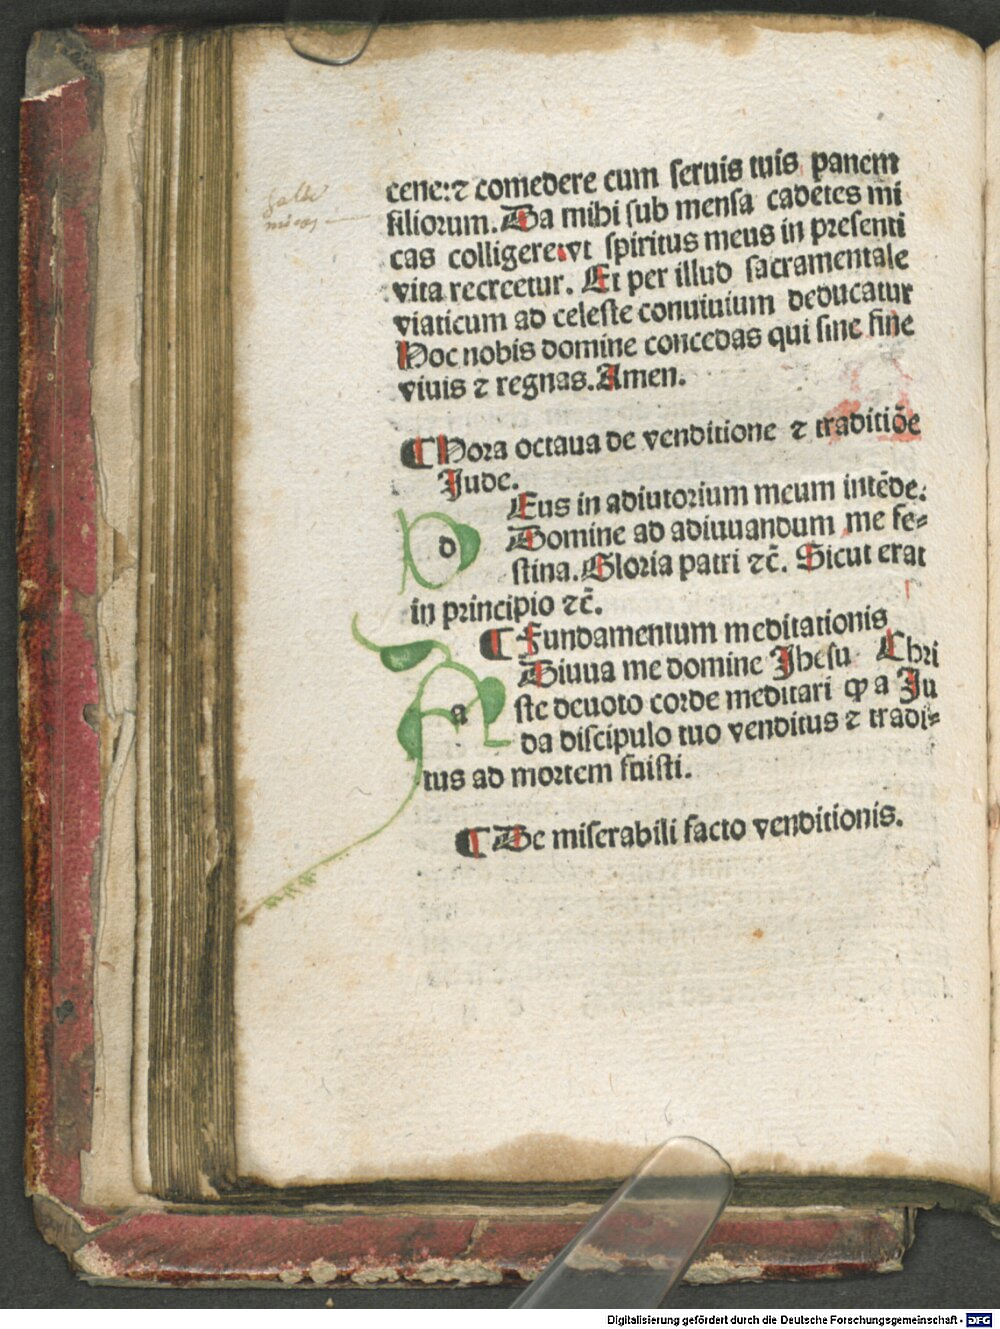 cene:⁊ comedere cum seruis tuis panem
filiorum. Da mihi sub mensa cadētes mi
cas colligere:vt spiritus meus in presenti
vita recreetur. Et per illud sacramentale
viaticum ad celeste conuiuium deducatur
Hoc nobis domine concedas qui sine fine
viuis ⁊ regnas. Amen.
¶ Hora octaua de venditione ⁊ traditiōe
Jude.
dEus in adiutorium meum intēde.
Domine ad adiuuandum me fe⸗
stina. Gloria patri ⁊c̄. Sicut erat
in principio ⁊c̄.
¶ Fundamentum meditationis
aDiuua me domine Jhesu Chri
ste deuoto corde meditari ꝙ a Ju
da discipulo tuo venditus ⁊ tradi⸗
tus ad mortem fuisti.
¶ De miserabili facto venditionis.
Digitalisierung gefördert durch die Deutsche Forschungsgemeinschaft - DFG